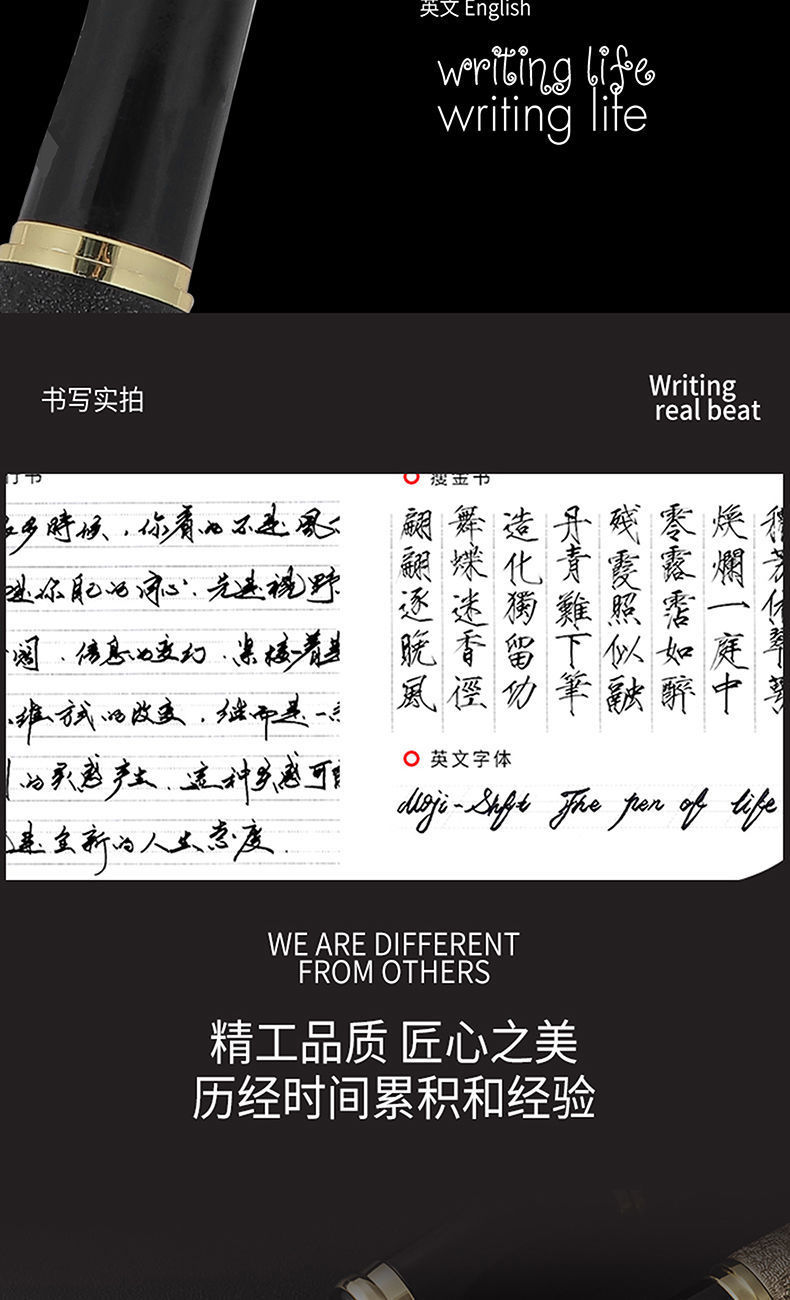 英文 English
writing life
writing life
书写实拍
Writing
real beat
行书
多時候,你看的不是風
是你自己的心.先是视野
阔.信息的变幻.紧接着
维方式的改变.继而是一
的灵感产生.这种灵感可
是全新的人生态度.
瘦金书
煥爛一庭中
零露霑如醉
残霞照似融
丹青難下筆
造化獨留功
舞蝶迷香徑
翩翩逐晚風
英文字体
Moji-Shft The pen of life
WE ARE DIFFERENT
FROM OTHERS
精工品质 匠心之美
历经时间累积和经验